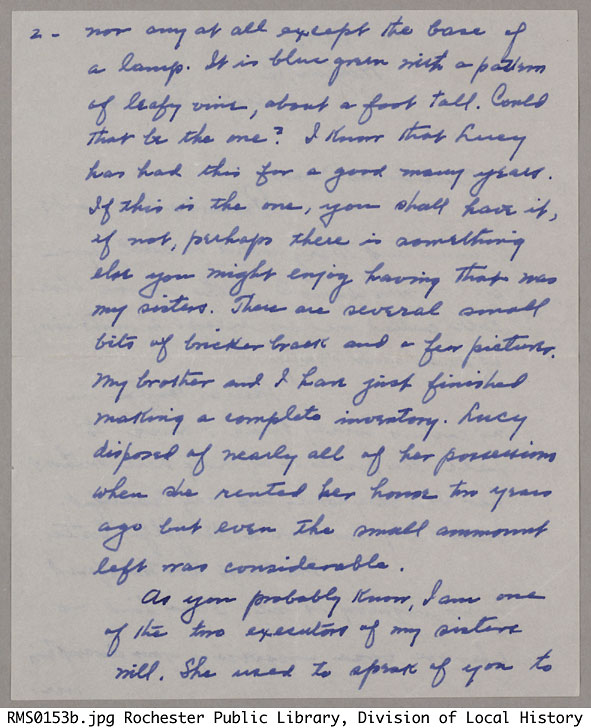 2 - nor any at all except the base of
a lamp. It is blue green with a pattern
of leafy vine, about a foot tall. Could
that be the one? I know that Lucy
has had this for a good many years.
If this is the one, you shall have it,
if not, perhaps there is something
else you might enjoy having that was
my sisters. There are several small
bits of bricker brack and a few pictures.
My brother and I have just finished
making a complete inventory. Lucy
disposed of nearly all of her possessions
when she rented her house two years
ago but even the small ammount
left was considerable.
As you probably know, I am one
of the two executors of my sisters
will. She used to speak of you to
RMS0153b.jpg Rochester Public Library, Division of Local History